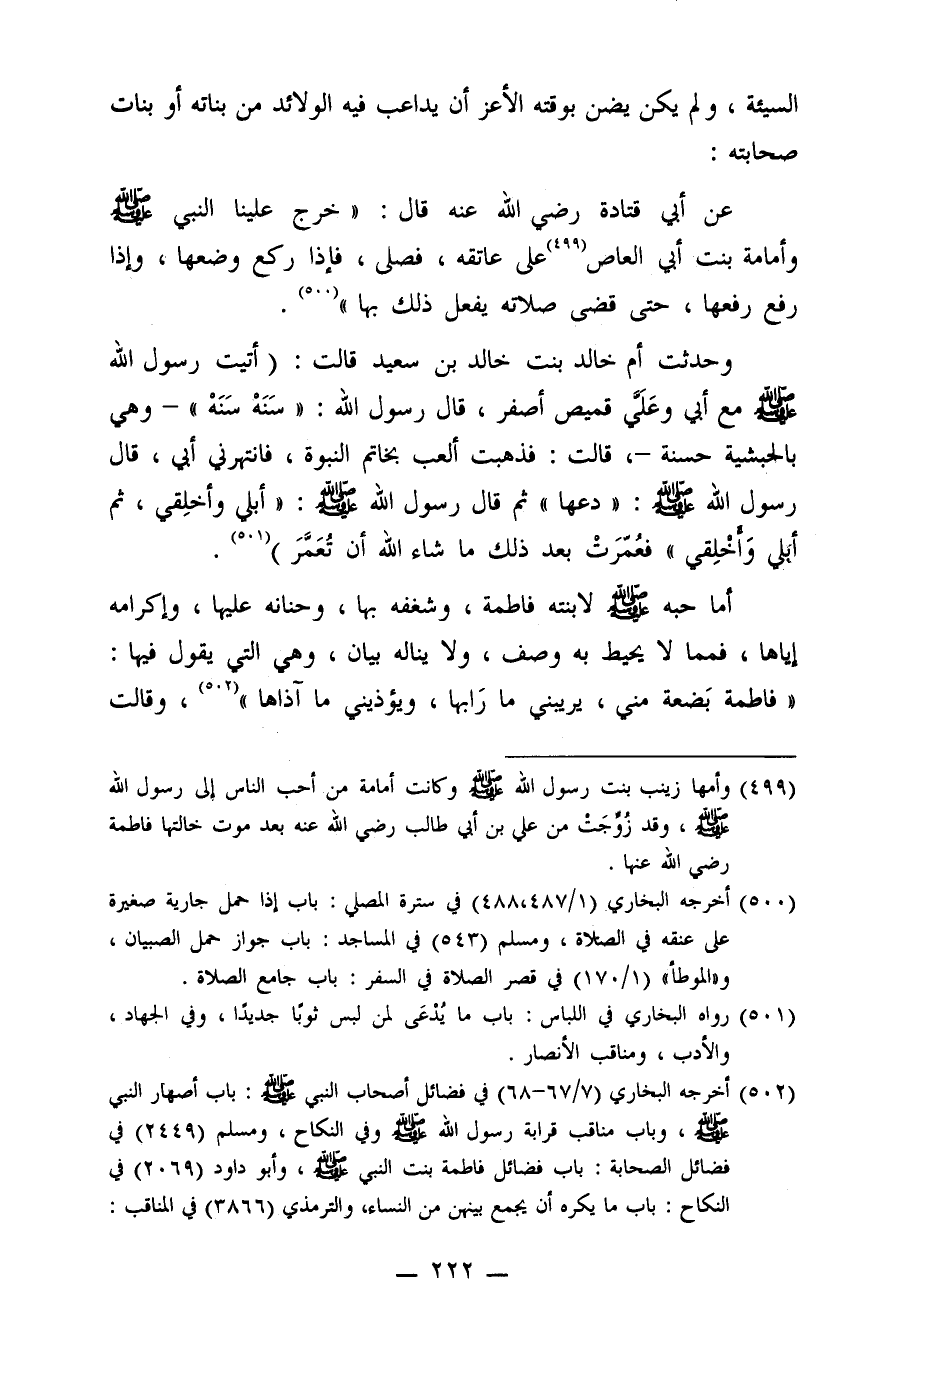 السيئة ، ولم يكن يضن بوقته الأعز أن يداعب فيه الولائد من بناته أو بنات
صحابته :
عن أبي قتادة رضي الله عنه قال : « خرج علينا النبي ﷺ
وأمامة بنت أبي العاص(٤٩٩)على عاتقه ، فصلى ، فإذا ركع وضعها ، وإذا
رفع رفعها ، حتى قضى صلاته يفعل ذلك بها »(٥٠٠) .
وحدثت أم خالد بنت خالد بن سعيد قالت : ( أتيت رسول الله
ﷺ مع أبي وعَلَيَّ قميص أصفر ، قال رسول الله : « سَنَهْ سَنَهْ » – وهي
بالحبشية حسنة –، قالت : فذهبت ألعب بخاتم النبوة ، فانتهرني أبي ، قال
رسول الله ﷺ : « دعها » ثم قال رسول الله ﷺ : « أبلي وأخلِقي ، ثم
أبَلي وَأَخْلِقي » فعُمّرَتْ بعد ذلك ما شاء الله أن تُعَمَّرَ )(٥٠١) .
أما حبه ﷺ لابنته فاطمة ، وشغفه بها ، وحنانه عليها ، وإكرامه
إياها ، فمما لا يحيط به وصف ، ولا يناله بيان ، وهي التي يقول فيها :
« فاطمة بَضعة مني ، يريبني ما رَابها ، ويؤذيني ما آذاها »(٥٠٢) ، وقالت
(٤٩٩) وأمها زينب بنت رسول الله ﷺ وكانت أمامة من أحب الناس إلى رسول الله
ﷺ ، وقد زُوِّجَتْ من علي بن أبي طالب رضي الله عنه بعد موت خالتها فاطمة
رضي الله عنها .
(٥٠٠) أخرجه البخاري (٤٨٨،٤٨٧/١) في سترة المصلي : باب إذا حمل جارية صغيرة
على عنقه في الصلاة ، ومسلم (٥٤٣) في المساجد : باب جواز حمل الصبيان ،
و«الموطأ» (١٧٠/١) في قصر الصلاة في السفر : باب جامع الصلاة .
(٥٠١) رواه البخاري في اللباس : باب ما يُدْعَى لمن لبس ثوبًا جديدًا ، وفي الجهاد ،
والأدب ، ومناقب الأنصار .
(٥٠٢) أخرجه البخاري (٦٧/٧–٦٨) في فضائل أصحاب النبي ﷺ : باب أصهار النبي
ﷺ ، وباب مناقب قرابة رسول الله ﷺ وفي النكاح ، ومسلم (٢٤٤٩) في
فضائل الصحابة : باب فضائل فاطمة بنت النبي ﷺ ، وأبو داود (٢٠٦٩) في
النكاح : باب ما يكره أن يجمع بينهن من النساء، والترمذي (٣٨٦٦) في المناقب :
— ٢٢٢ —